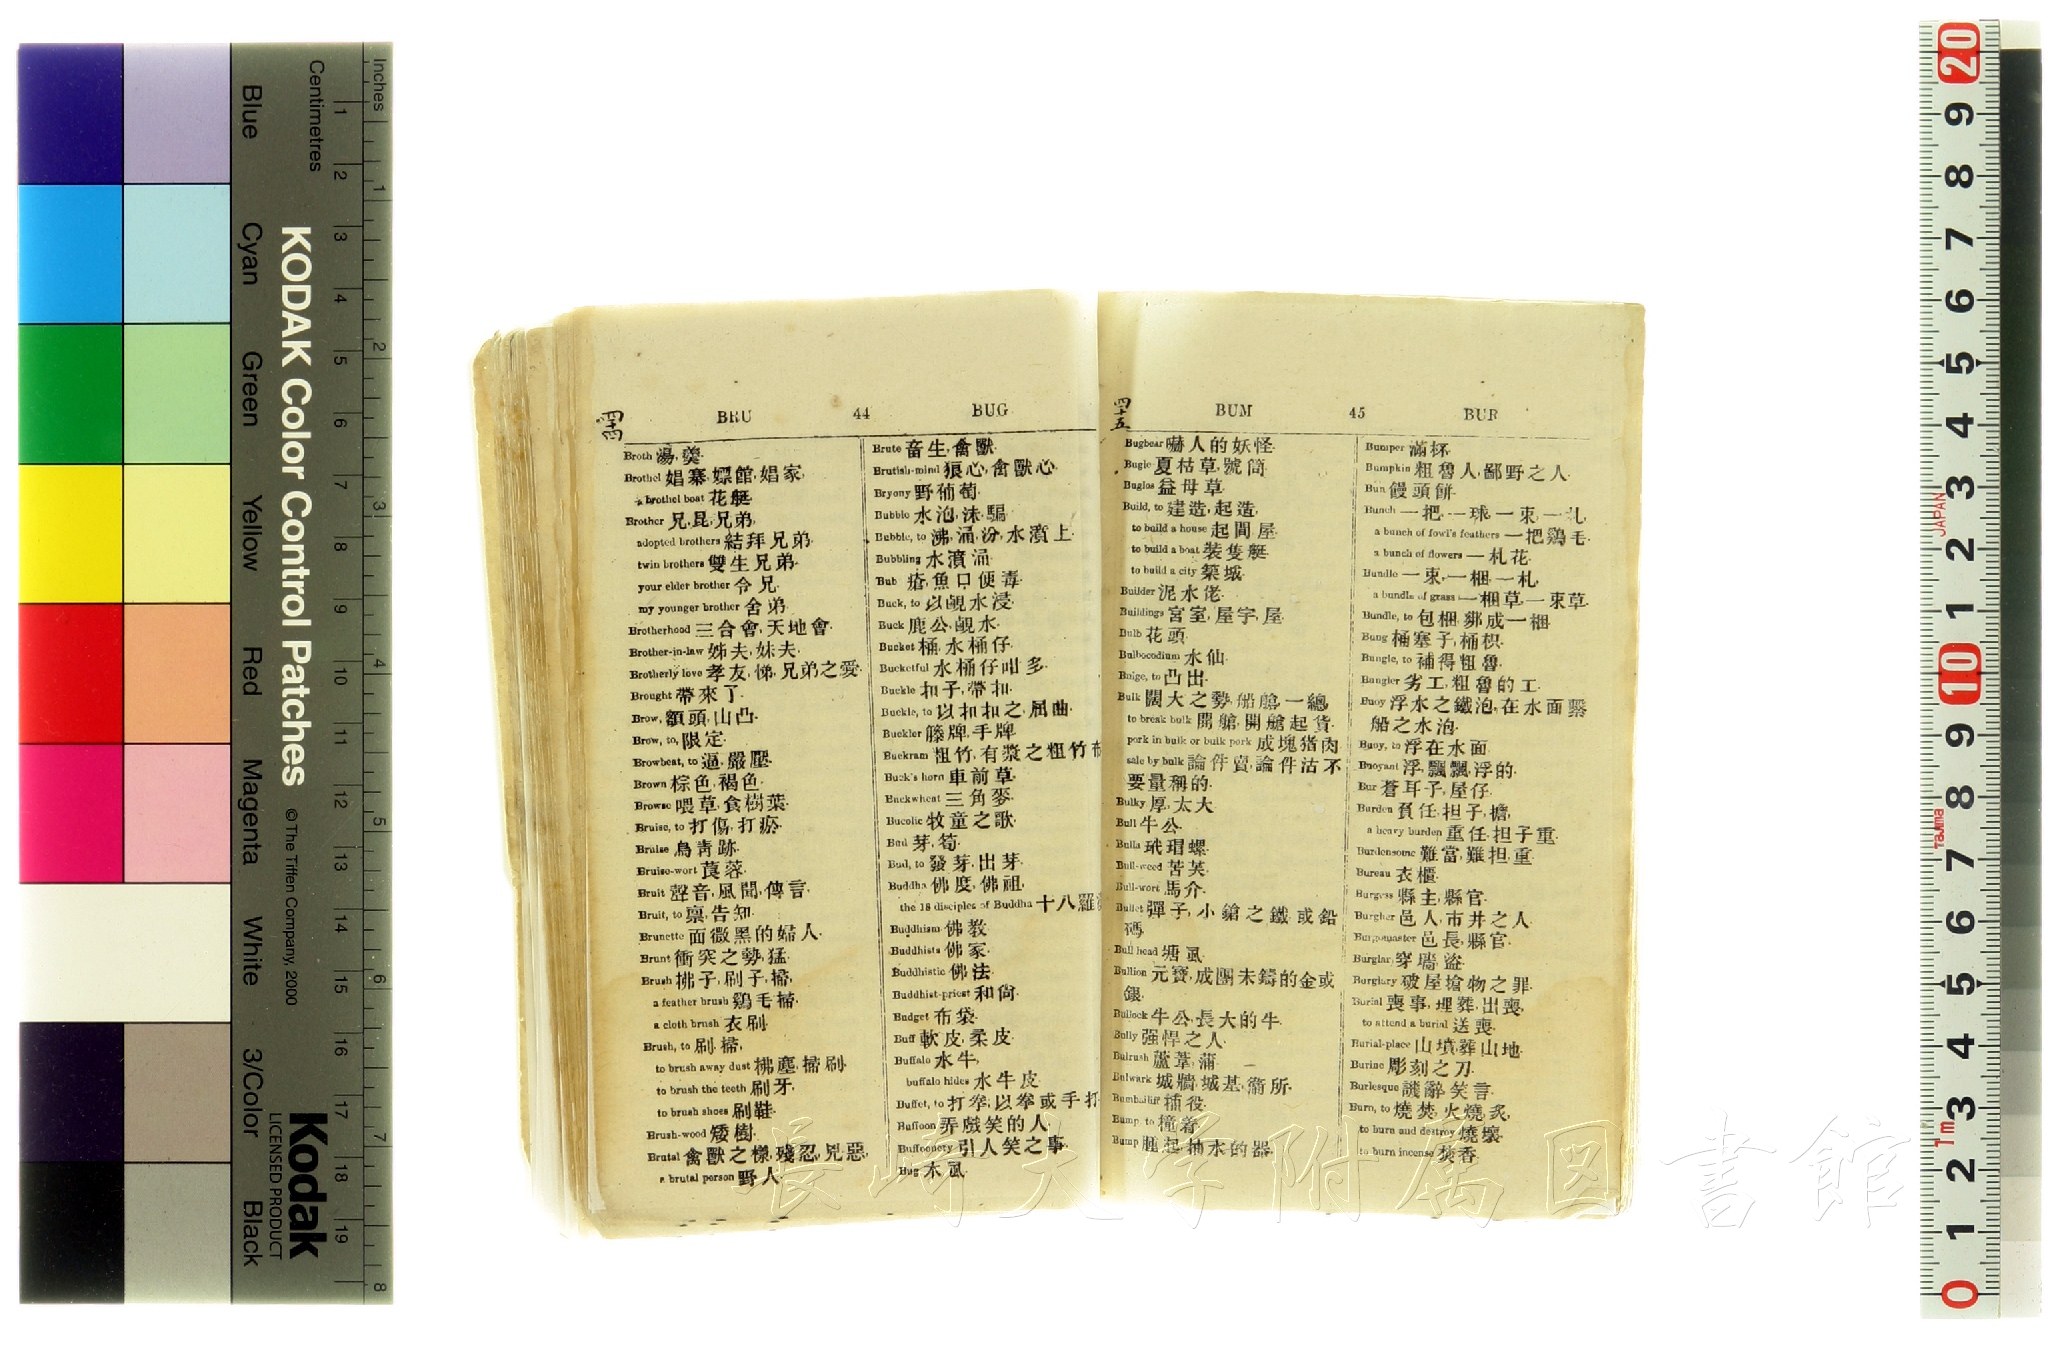 Inches
Centimetres
KODAK Color Control Patches
© The Tiffen Company, 2000
Kodak
LICENSED PRODUCT
Blue
Cyan
Green
Yellow
Red
Magenta
White
3/Color
Black
四十四
BRU 44 BUG
Broth 湯,羹.
Brothel 娼寨,嫖館,娼家,
a brothel boat 花艇
Brother 兄,昆,兄弟,
adopted brothers 結拜兄弟.
twin brothers 雙生兄弟.
your elder brother 令兄.
my younger brother 舍弟.
Brotherhood 三合會,天地會.
Brother-in-law 姊夫,妹夫.
Brotherly love 孝友,悌,兄弟之愛.
Brought 帶來了.
Brow, 額頭,山凸.
Brow, to, 限定.
Browbeat, to 逼,嚴壓.
Brown 棕色,褐色.
Browse 喂草,食樹葉.
Bruise, to 打傷,打瘀.
Bruise 烏靑跡.
Bruise-wort 莨蓉.
Bruit 聲音,風聞,傳言.
Bruit, to 禀,告知.
Brunette 面微黑的婦人.
Brunt 衝突之勢,猛.
Brush 拂子,刷子,掃.
a feather brush 鷄毛掃.
a cloth brush 衣刷.
Brush, to 刷,掃,
to brush away dust 拂塵,掃刷.
to brush the teeth 刷牙.
to brush shoes 刷鞋.
Brush-wood 矮樹.
Brutal 禽獸之樣,殘忍,兇惡,
a brutal person 野人.
Brute 畜生,禽獸.
Brutish-mind 狼心,禽獸心.
Bryony 野葡萄.
Bubble 水泡,沫,騙.
Bubble, to 沸,涌,汾,水濆上.
Bubbling 水濆涌.
Bub 瘡,魚口便毒.
Buck, to 以鹼水浸.
Buck 鹿公,鹼水.
Bucket 桶,水桶仔.
Bucketful 水桶仔咁多.
Buckle 扣子,帶扣.
Buckle, to 以扣扣之,屈曲.
Buckler 籐牌,手牌
Buckram 粗竹,有漿之粗竹布
Buck's horn 車前草.
Buckwheat 三角麥.
Bucolic 牧童之歌.
Bud 芽,筍.
Bud, to 發芽,出芽.
Buddha 佛度,佛祖,
the 18 disciples of Buddha 十八羅
Buddhism 佛敎.
Buddhists 佛家.
Buddhistic 佛法.
Buddhist-priest 和尙.
Budget 布袋.
Buff 軟皮,柔皮.
Buffalo 水牛,
buffalo hides 水牛皮.
Buffet, to 打拳,以拳或手打
Buffoon 弄戲笑的人.
Buffoonery 引人笑之事.
Bug 木虱.
四十五
BUM 45 BUR
Bugbear 嚇人的妖怪.
Bugle 夏枯草,號筒.
Bugloss 益母草.
Build, to 建造,起造,
to build a house 起間屋.
to build a boat 裝隻艇.
to build a city 築城.
Builder 泥水佬.
Buildings 宮室,屋宇,屋.
Bulb 花頭.
Bulbocodium 水仙.
Bulge, to 凸出.
Bulk 濶大之勢,船艙,一總,
to break bulk 開艙,開艙起貨.
pork in bulk or bulk pork 成塊猪肉
sale by bulk 論件賣,論件沽不
要量稱的.
Bulky 厚,太大
Bull 牛公.
Bulla 玳瑁螺.
Bull-weed 苦芙.
Bull-wort 馬介.
Bullet 彈子,小鎗之鐵或鉛
碼.
Bull head 塘虱.
Bullion 元寶,成團未鑄的金或
銀.
Bullock 牛公,長大的牛.
Bully 强悍之人.
Bulrush 蘆葦,蒲.
Bulwark 城牆,城基,衞所.
Bumbailiff 捕役.
Bump, to 撞着.
Bump 腫起,抽水的器.
Bumper 滿杯.
Bumpkin 粗魯人,鄙野之人.
Bun 饅頭餅.
Bunch 一把,一球,一束,一札,
a bunch of fowl's feathers 一把鷄毛.
a bunch of flowers 一札花.
Bundle 一束,一梱,一札,
a bundle of grass 一梱草,一束草.
Bundle, to 包梱,綁成一梱.
Bung 桶塞子,桶枳.
Bungle, to 補得粗魯.
Bungler 劣工,粗魯的工.
Buoy 浮水之鐵泡,在水面繫
船之水泡.
Buoy, to 浮在水面.
Buoyant 浮,飄飄,浮的.
Bur 蒼耳子,屋仔.
Burden 負任,担子,擔,
a heavy burden 重任,担子重.
Burdensome 難當,難担,重.
Bureau 衣櫃.
Burgess 縣主,縣官.
Burgher 邑人,市井之人.
Burgomaster 邑長,縣官.
Burglar 穿墻盜.
Burglary 破屋搶物之罪.
Burial 喪事,埋葬,出喪,
to attend a burial 送喪.
Burial-place 山墳,葬山地.
Burine 彫刻之刀.
Burlesque 譏辭,笑言.
Burn, to 燒,焚,火燒,炙,
to burn and destroy 燒壞.
to burn incense 焚香.
長崎大学附属図書館
JAPAN
Tajima
1m